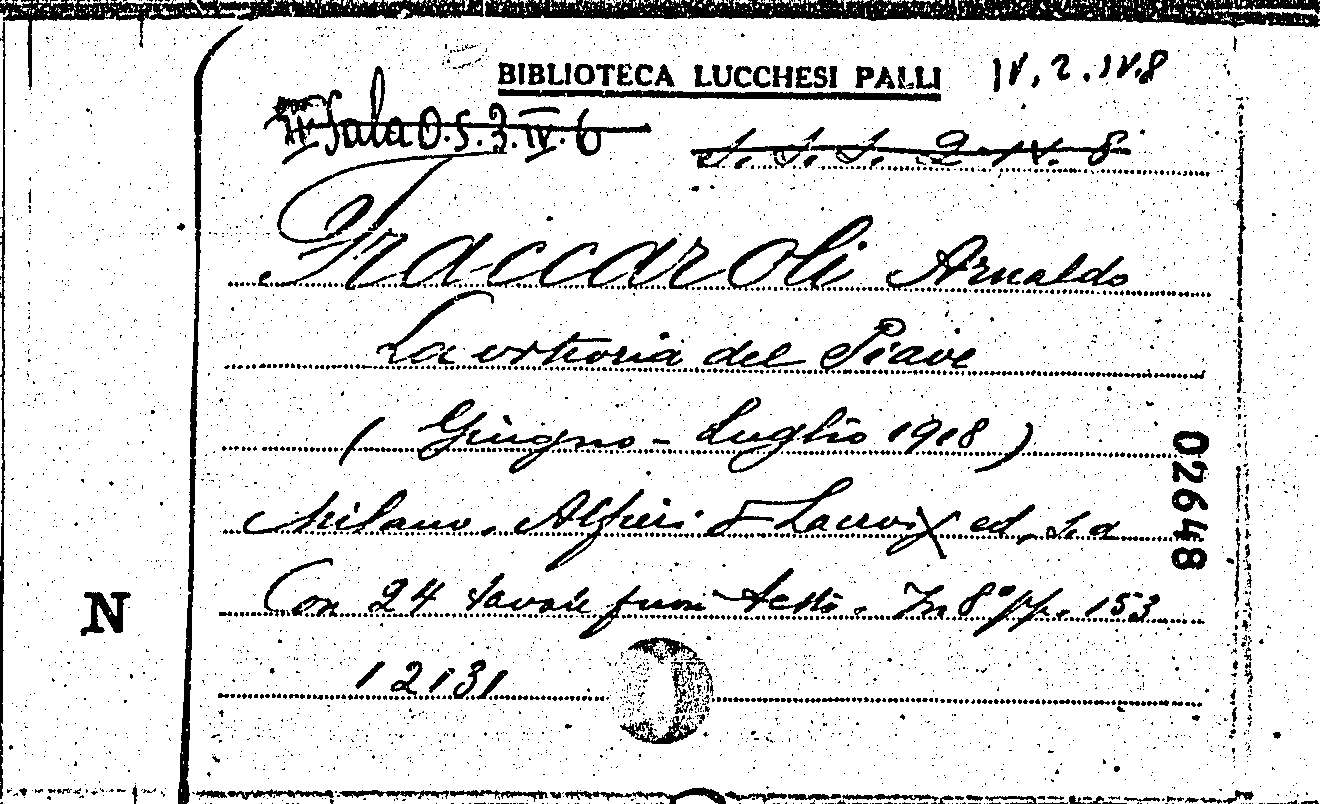 BIBLIOTECA LUCCHESI PALLI IV.2.IV.8
Sala O.S.3.IV.6
S. S. S. 2-IV. 8
Fraccaroli Arnaldo
La vittoria del Piave
( Giugno - Luglio 1918 )
Milano, Alfieri & Lacroix ed, s.a
Con 24 tavole fuori testo. In 8° pp. 153
12131
02648
N